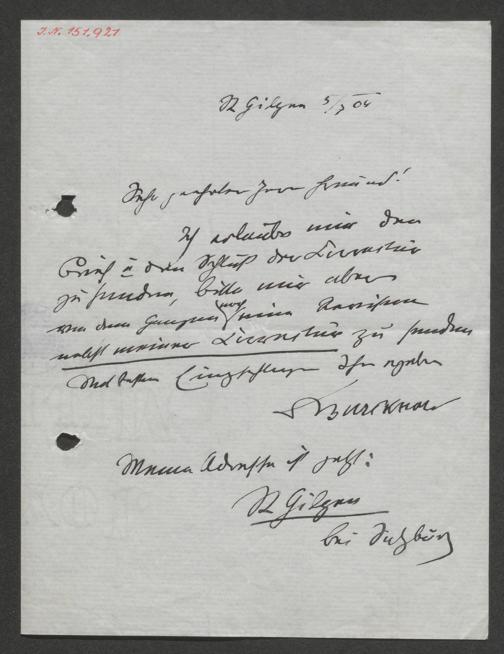 J.N. 151,921
St Gilgen 5/7 04
Sehr geehrter Herr Freund!
Ich erlaube mir den
Brief u den Schluß der Correctur
zu senden, bitte mir aber
von dem Ganzen noch eine Revision
nebst meiner Correctur zu senden
Mit besten Empfehlungen Ihr ergeb
Burckhard
Meine Adresse ist jetzt:
St Gilgen
bei Salzburg